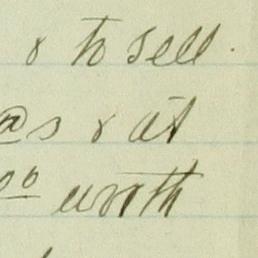 & to sell.
@s & at
00 worth